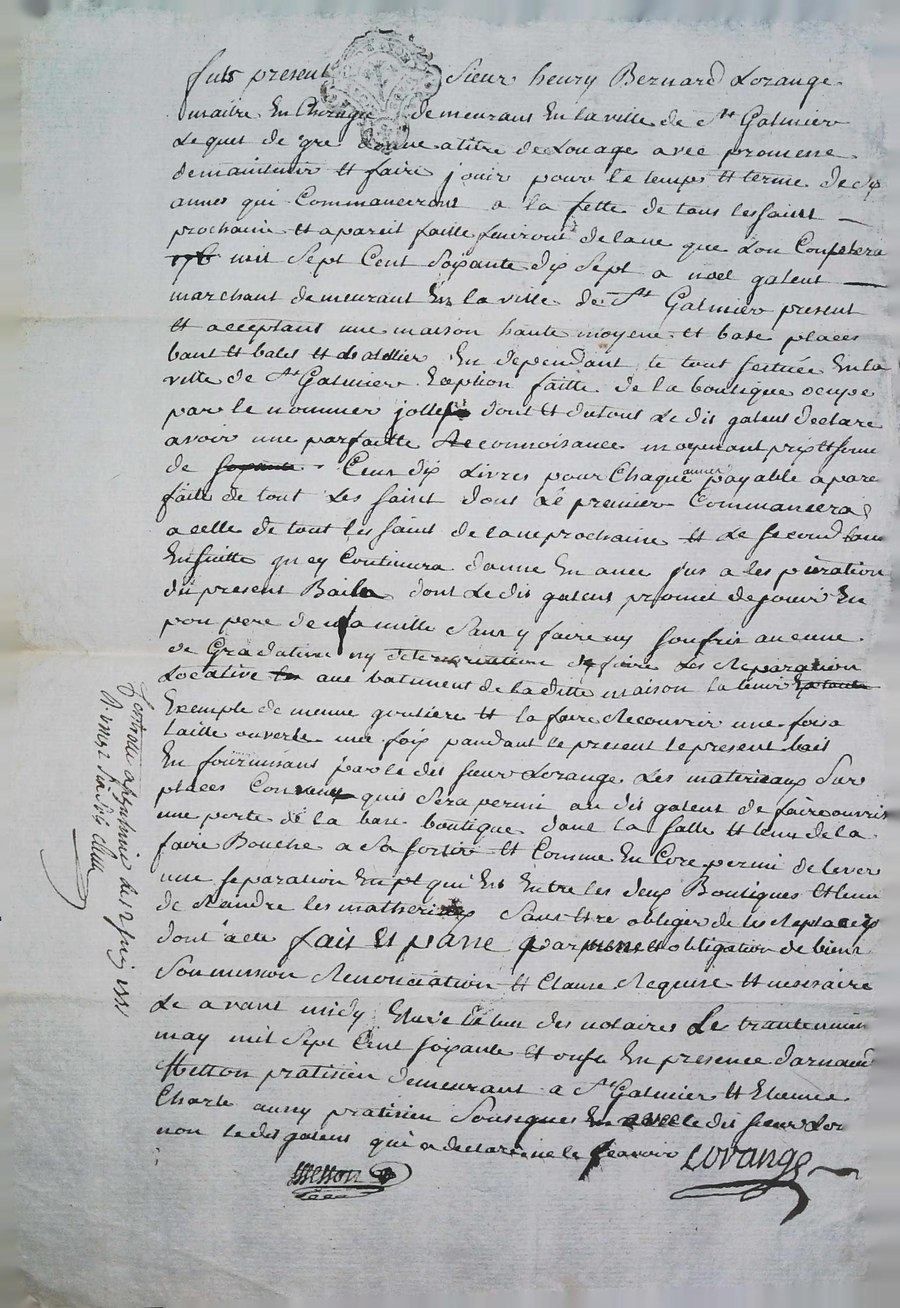 fut present Sieur henry Bernard Lorange
maitre En Chirugie demeurant En la ville de St Galmier
Lequel de gré donne a titre de Louage avec promesse
de maintenir et faire jouir pour le temps et terme de six
annes qui Commanceront a la fette de tous les saint
prochain et a pareil faitte finiront de lanne que Lon Contera
mil Sept Cent Soixante dix Sept a noel galent
marchant demeurant En la ville de St Galmier present
et acceptant une maison haute moyene et base places
haut et bales et datellier En dependant le tout scittuée En la
ville de St Galmier Exeption faitte de la boutique ocupe
par le nommer dont et du tout Le dit galent declare
avoir une parfaitte connoisance moyenant prix et ferme
de Cent dix Livres pour Chaque annes payable a pare
faite de tout Les saint dont Le premier Commancera
a celle de tout les saint de lanne prochaine et Le second
Ensuitte qu ey Continura danne En anne jus a les piration
du present Baile dont Le dit galent promet de jouir En
pon pere de famille Sans y faire ny soufrir aucune
de Gradation ny deterioration de faire Les Reparation
Locative aue batiment de la ditte maison la tenir
Exemple de menue goutiere et la faire Recouvrir une fois a
taille ouverte une fois pandant le present le present bail
En fournissant par le dit sieur Lorange Les materieaux Sur
places Convenu quil Sera permi au dit galent de faire ouvrir
une porte de la base boutique dans la salle et de la
faire Bouche a Sa sortie et Comme En Core permi de lever
une separation En qui Est Entre les deux Boutiques et
de Randre les matherieaux Sans Etre obliger de les Replacer
dont acte fait Et passe par obligation de biens
Soumission Renonciation et Clause Requise et nesesaire
Le avant midy Etude des notaires Le trante
may mil Sept Cent soixante et onse En presence darnaud
Metton pratisien demeurant a St Galmier et Etienne
Charle aussy pratisien Sousignes avec le dit sieur Lor
non le dit galent qui a declare ne le scavoir Lorange
Metton